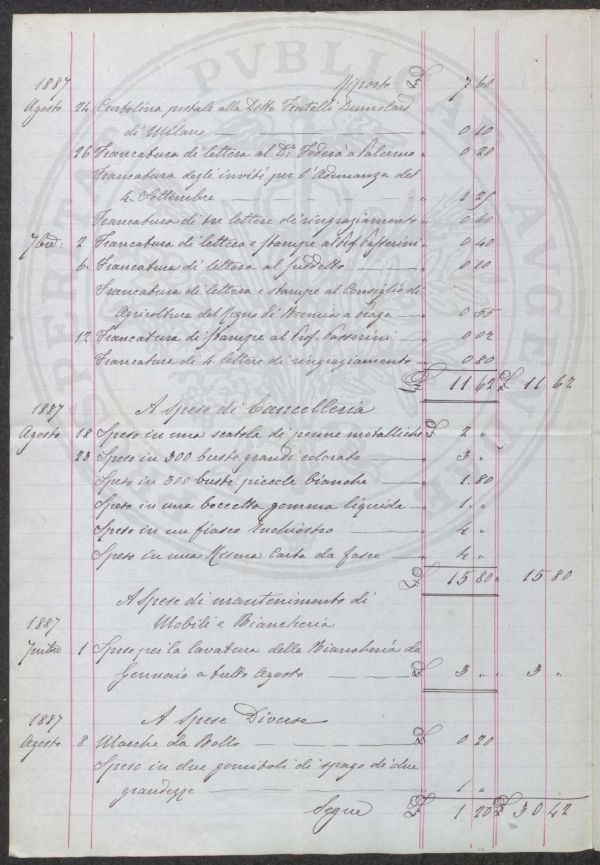 1887 Riporto £ 7 60
Agosto 24 Cartolina postale alla Ditta Fratelli Dumolard
di Milano " 0 10
26 Francatura di lettera al Dr. Foderà a Palermo " 0 20
Francatura degli inviti per l'Adunanza del
4 Settembre " 1 25
Francatura di tre lettere di ringraziamento " 0 60
7bre. 2 Francatura di lettera e stampe al Prof. Passerini " 0 40
6 Francatura di lettera al suddetto " 0 10
Francatura di lettera e stampe al Consiglio di
Agricoltura del Regno di Boemia a Praga " 0 55
12 Francatura di stampe al Prof. Passerini " 0 02
Francatura di 4 lettere di ringraziamento " 0 80
£ 11 62 £ 11 62
1887 A Spese di Cancelleria
Agosto 18 Speso in una scatola di penne metalliche £ 2 "
23 Speso in 300 buste grandi colorate " 3 "
Speso in 300 buste piccole bianche " 1.80
Speso in una boccetta gomma liquida " 1 "
Speso in un fiasco Inchiostro " 4 "
Speso in una Risma Carta da fasce " 4 "
£ 15 80 " 15 80
A Spese di mantenimento di
1887 Mobili e Biancheria
1 Speso per la lavatura della Biancheria da
Gennaio a tutto Agosto £ 3 " " 3 "
1887 A Spese Diverse
Agosto 8 Marche da Bollo £ 0 20
Speso in due gomitoli di spago di due
grandezze " 1 "
Segue £ 1 20 £ 30 42
PVBLICA
AVGENDAE